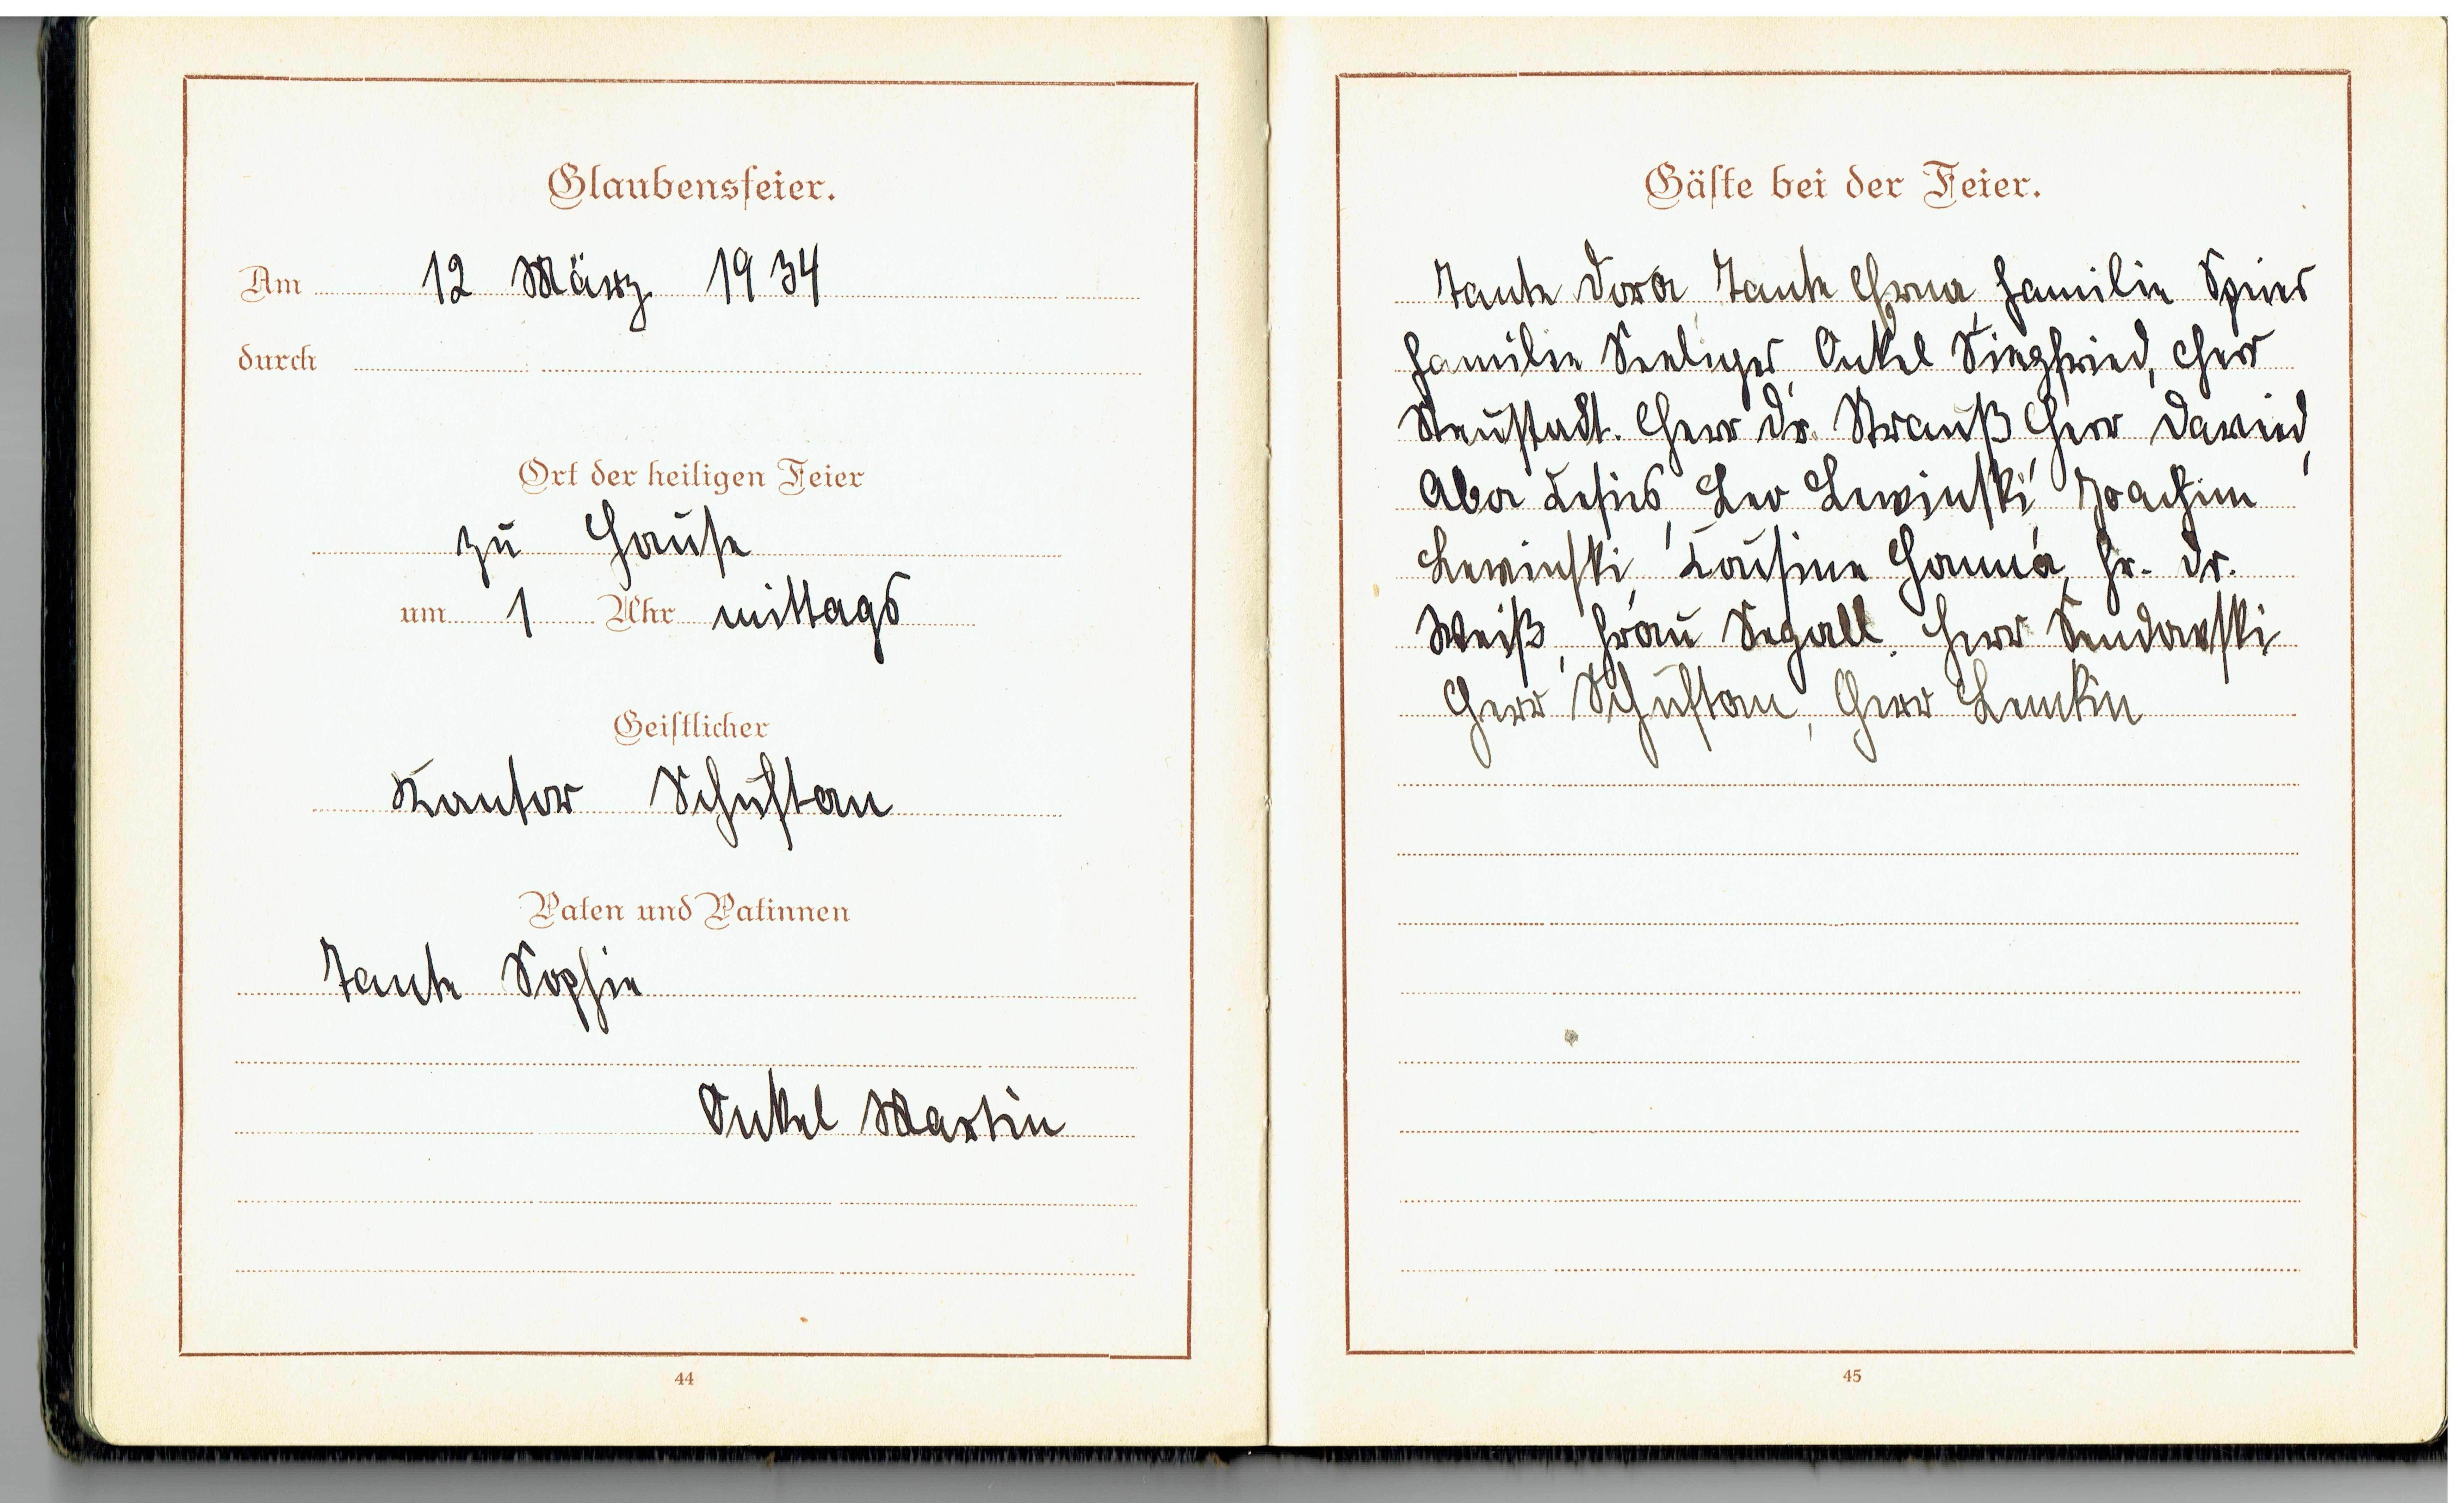 Glaubensfeier.
Am 12 März 1934
durch
Ort der heiligen Feier
zu Hause
um 1 Uhr mittags
Geistlicher
Kantor Schuftan
Paten und Patinnen
Tante Sophie
Onkel Martin
44
Gäste bei der Feier.
Tante Dora, Tante Erna, Familie Spier
Familie Seeliger, Onkel Siegfried, Herr
Neustadt. Herr Dr. Strauß, Herr David,
Leo Lewinski, Joachim
Lewinski, Kousine Hanna, Fr. Dr.
Weiß, Frau Segall. Herr Sendowski
Herr Schuftan, Herr Lemkin
45